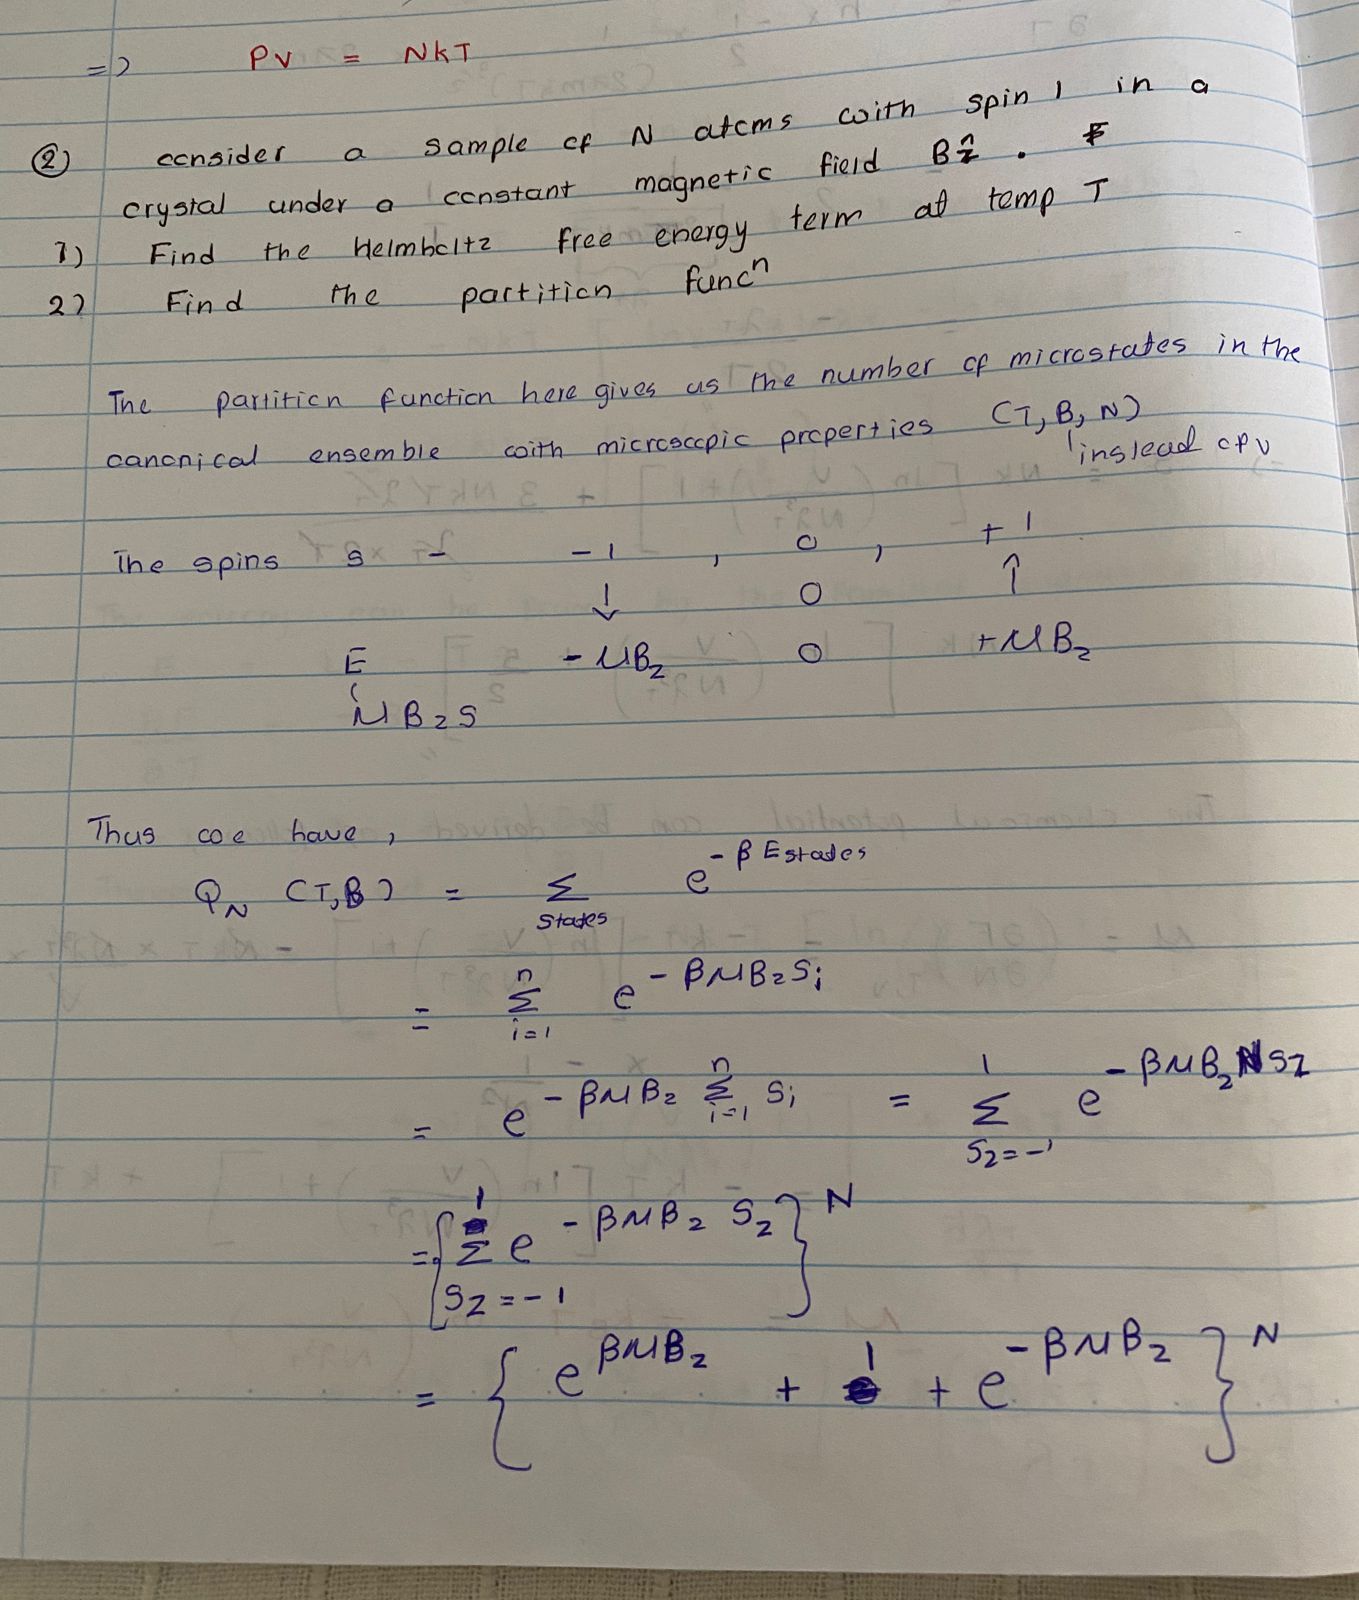 => PV = NKT
② consider a sample of N atoms with spin 1 in a
crystal under a constant magnetic field Bẑ .
1) Find the Helmholtz free energy term at temp T
2) Find the partition funcⁿ
The partition function here gives us the number of microstates in the
canonical ensemble with microscopic properties (T, B, N)
instead of V
The spins s - -1 , 0 , +1
↓ 0 ↑
E -μBz 0 +μBz
μBzS
Thus we have ,
Q_N (T,B) = Σ_states e^{-βE states}
= Σ_{i=1}^{n} e^{-βμBzSi}
= e^{-βμBz Σ_{i=1}^{n} Si} = Σ_{Sz=-1}^{1} e^{-βμBzNSz}
= { Σ_{Sz=-1}^{1} e^{-βμBz Sz} }^N
= { e^{βμBz} + 1 + e^{-βμBz} }^N